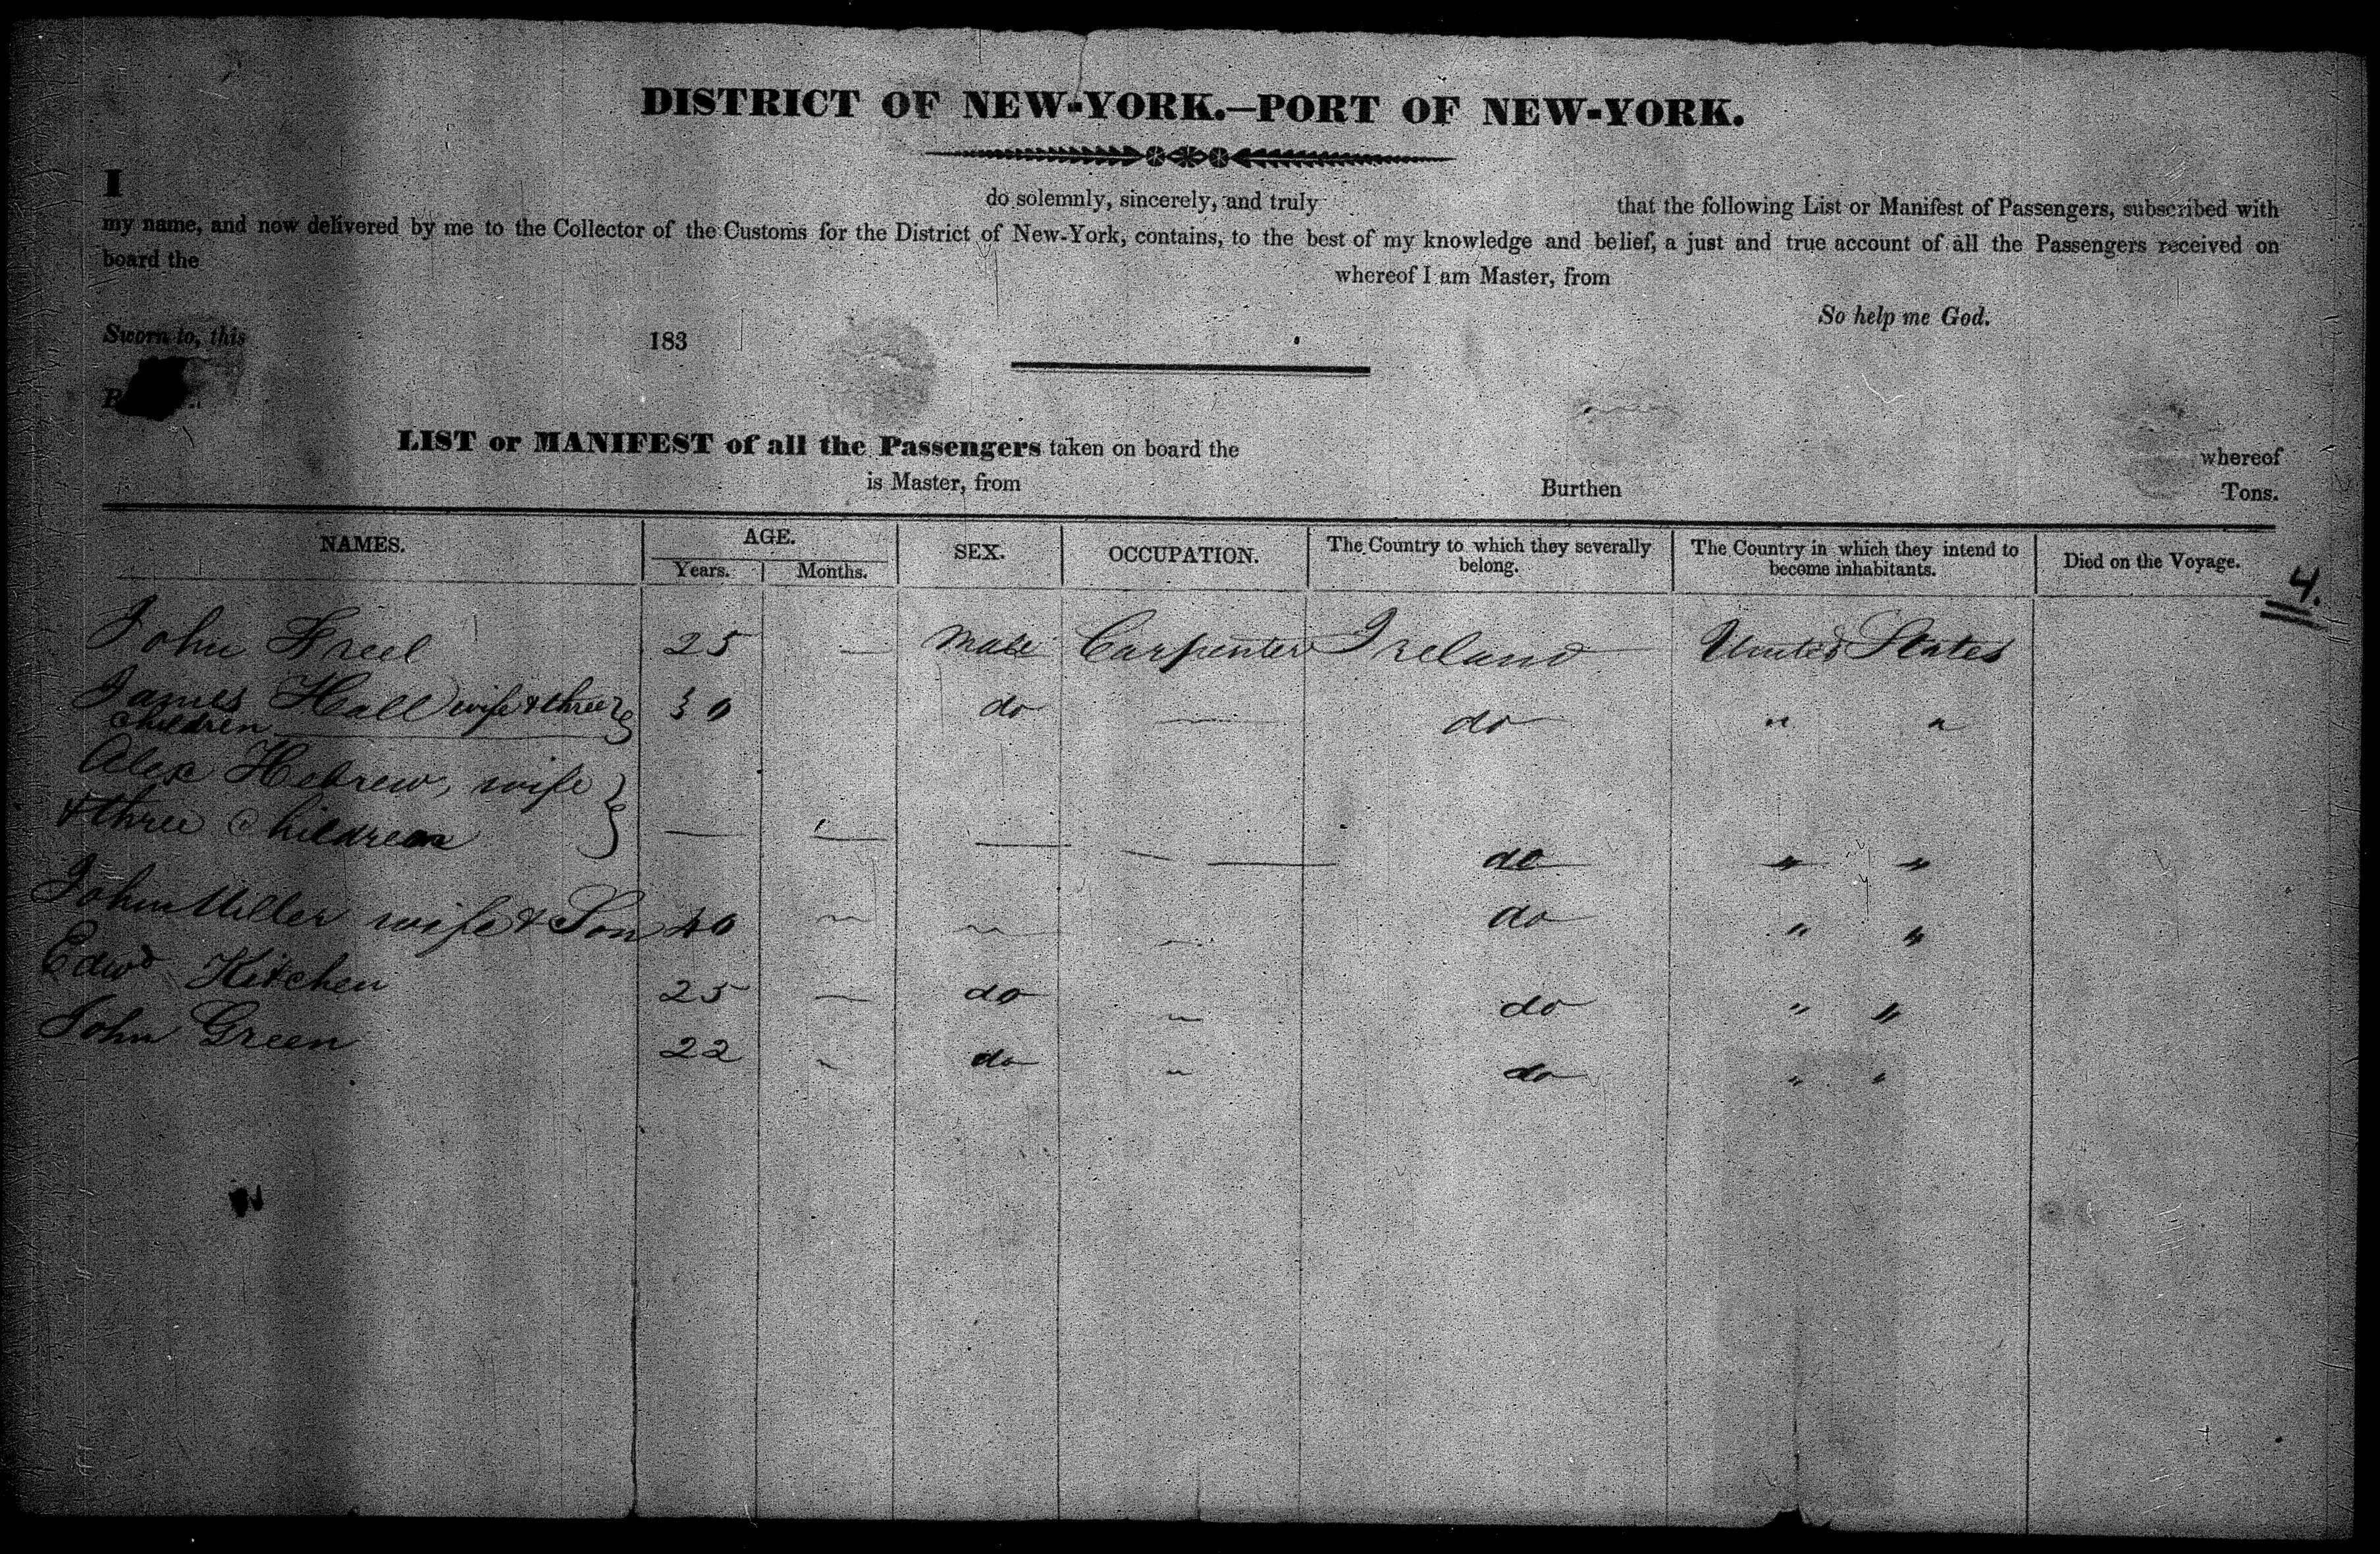 DISTRICT OF NEW-YORK.—PORT OF NEW-YORK.
I do solemnly, sincerely, and truly that the following List or Manifest of Passengers, subscribed with
my name, and now delivered by me to the Collector of the Customs for the District of New-York, contains, to the best of my knowledge and belief, a just and true account of all the Passengers received on
board the whereof I am Master, from
So help me God.
Sworn to, this 183
LIST or MANIFEST of all the Passengers taken on board the whereof
is Master, from Burthen Tons.
NAMES. AGE. SEX. OCCUPATION. The Country to which they severally belong. The Country in which they intend to become inhabitants. Died on the Voyage.
Years. Months.
4.
John Freel 25 — Male Carpenter Ireland United States
James Hall wife & three } 30 do — do " "
children
Alex Hebrew, wife }
& three Children — — — — do " "
John Miller wife & Son 40 — — — do " "
Edwd Kitchen 25 — do — do " "
John Green 22 - do — do " "